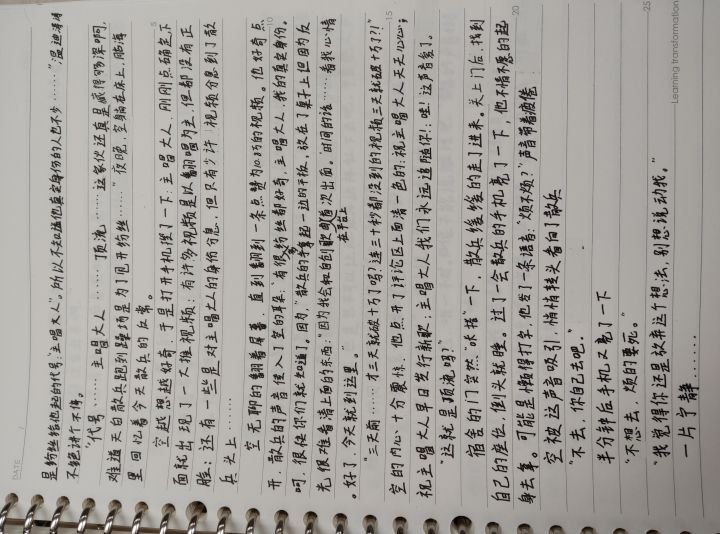 DATE
是粉丝给他起的代号"主唱大人"。所以不知道他真实身份的人也不少……"温迪滔滔
不绝讲个不停。
"代号……主唱大人……顶流……这家伙还真是藏得够深啊,
难道天台散兵跑到蹲场是为了见开粉丝……"夜晚,空躺在床上,脑海
里回忆着今天散兵的反常。
空越想越好奇,于是打开手机搜了一下主唱大人,刚刚点确定,下
面就出现了一大堆视频;有许多视频是以翻唱为主,但都没有正
脸;还有一些是对主唱大人的身份分息,但只有少许视频分息到了散
兵头上……
空无聊的翻着屏幕,直到翻到一条点赞为10.5万的视频。他好奇点
开,散兵的声音便入了空的耳朵:"有很多粉丝都好奇,主唱大人,我的真实身份。
呵,很快你们就知道了。因为,散兵的手拿起一边的平板,放在了桌子上但因为反
光很难看清上面的东西:"因为我会和自创歌曲首次出面。时间的话……看我心情
在平台上
。好了,今天就到这里。"
"三天前……才三天就破十万了吗?连三十秒都没到的视频三天就破十万了?!"
空的内心十分震惊。他点开了评论区上面清一色的:祝主唱大人天天开心;
祝主唱大人早日发行新歌;主唱大人我们永远追随你!;哇!这声音爱了。
"这就是顶流吗?"
宿舍的门突然"咔擦"一下,散兵缓缓的走了进来。关上门后,找到
自己的座位,倒头就睡。过了一会散兵的手机亮了一下,他不情不愿的起
身去拿。可能是懒得打字,他发了一条语音:"烦不烦?"声音带着疲倦
空被这声音吸引,悄悄转头看向了散兵
"不去,你自己去吧。"
半分钟后手机又亮了一下
"不想去,烦的要死。"
"我觉得你还是放弃这个想法,别想说动我。"
一片宁静……
5
10
15
20
25
Learning transformation